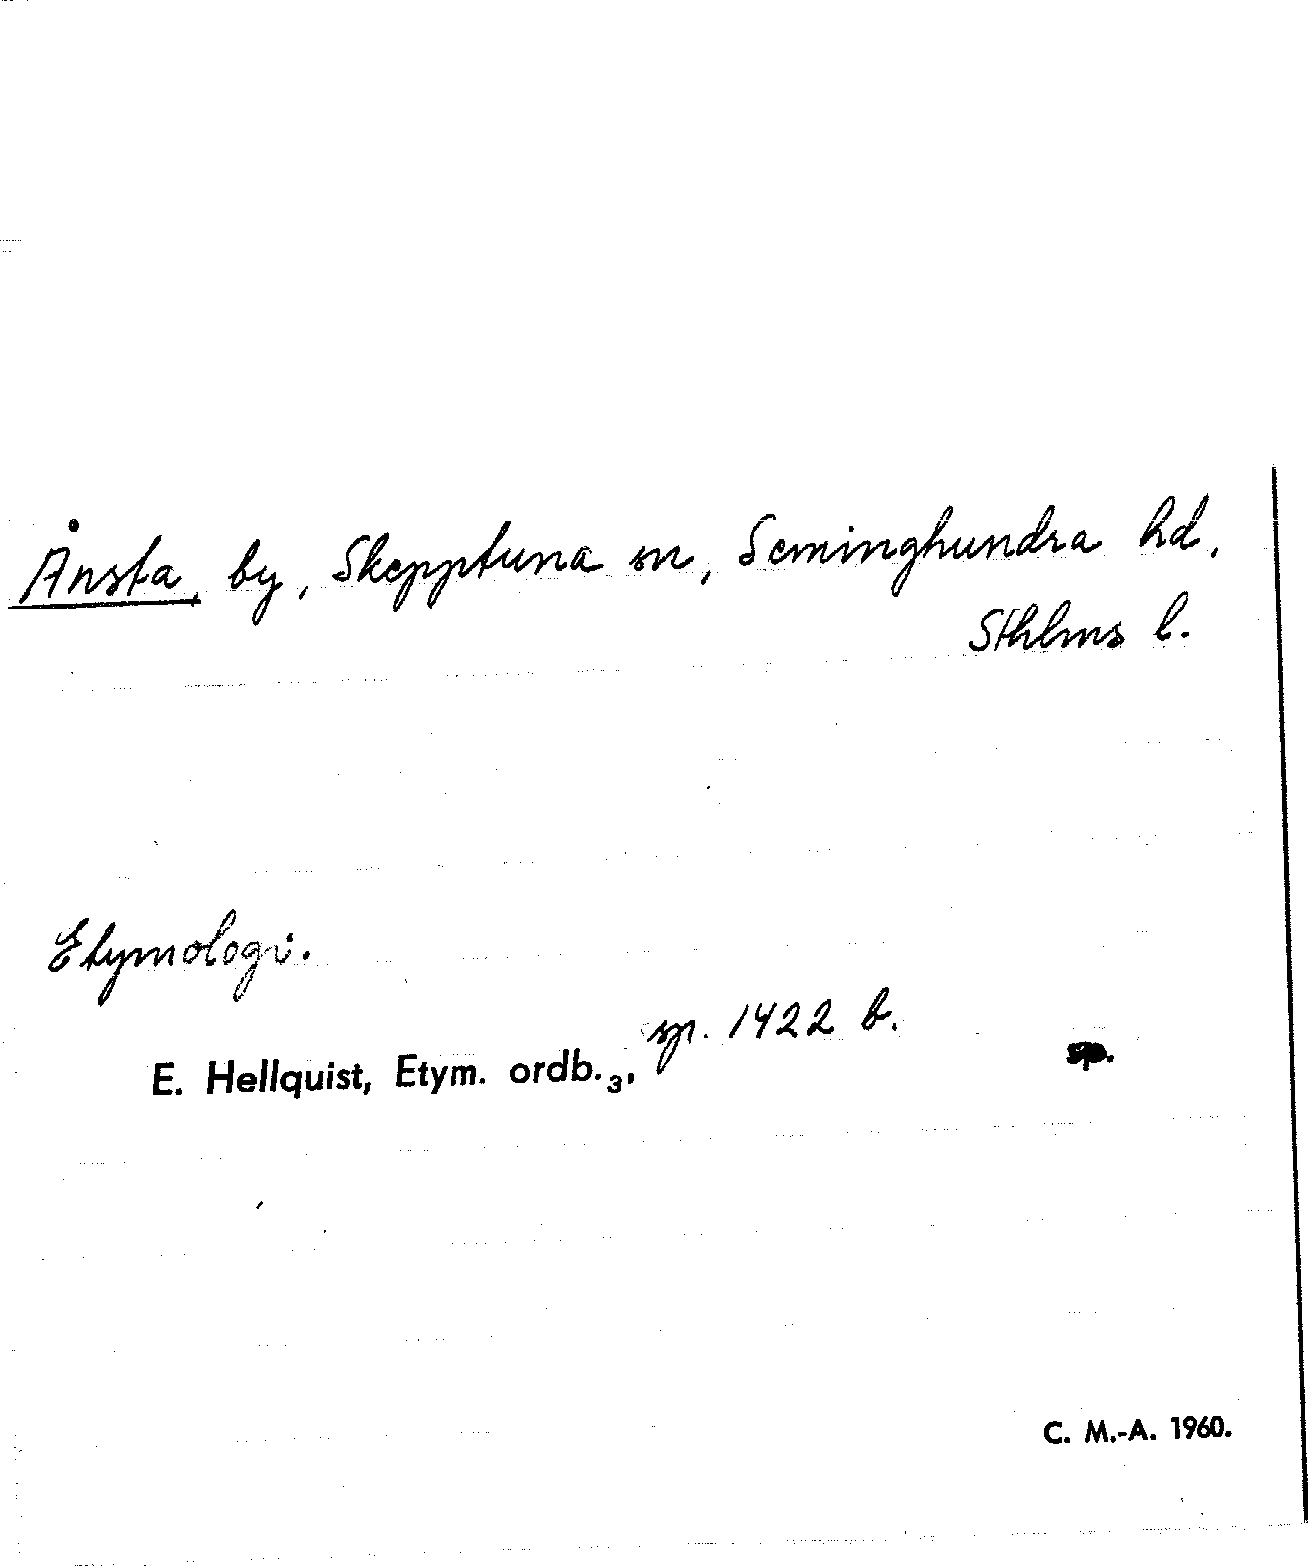 Ånsta, by, Skepptuna sn, Seminghundra hd,
Sthlms l.
Etymologi.
E. Hellquist, Etym. ordb.3, sp. 1422 b.
sp.
C. M.-A. 1960.